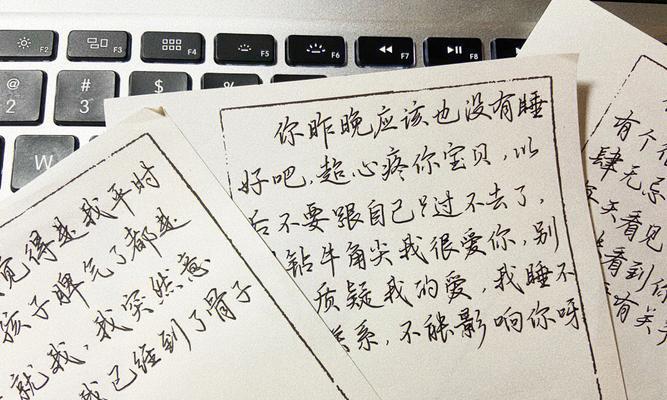 F2
F3
F4
F5
F6
F7
F8
@
2
#
3
$
%
W
觉得是我平时
孩子脾气了都是
就我,我突然意
我已经到了骨子
你昨晚应该也没有睡
好吧,超心疼你宝贝,以
后不要跟自己过不去了,
钻牛角尖我很爱你,别
质疑我的爱,我睡不
系,不能影响你呀
有个
肆无忌
看见
看到你
有关